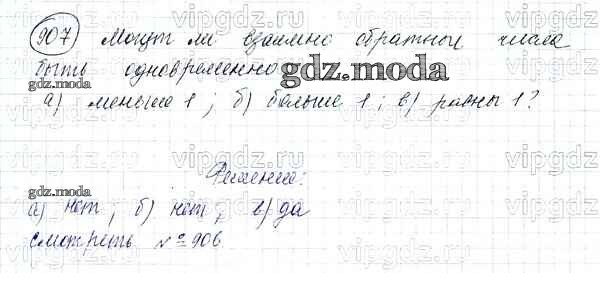 907 Могут ли взаимно обратные числа
быть одновременно
а) меньше 1; б) больше 1; в) равны 1?
Решение:
а) нет; б) нет; в) да
смотреть №906.
gdz.moda
gdz.moda
gdz.moda
gdz.moda
vipgdz.ru
vipgdz.ru
vipgdz.ru
vipgdz.ru